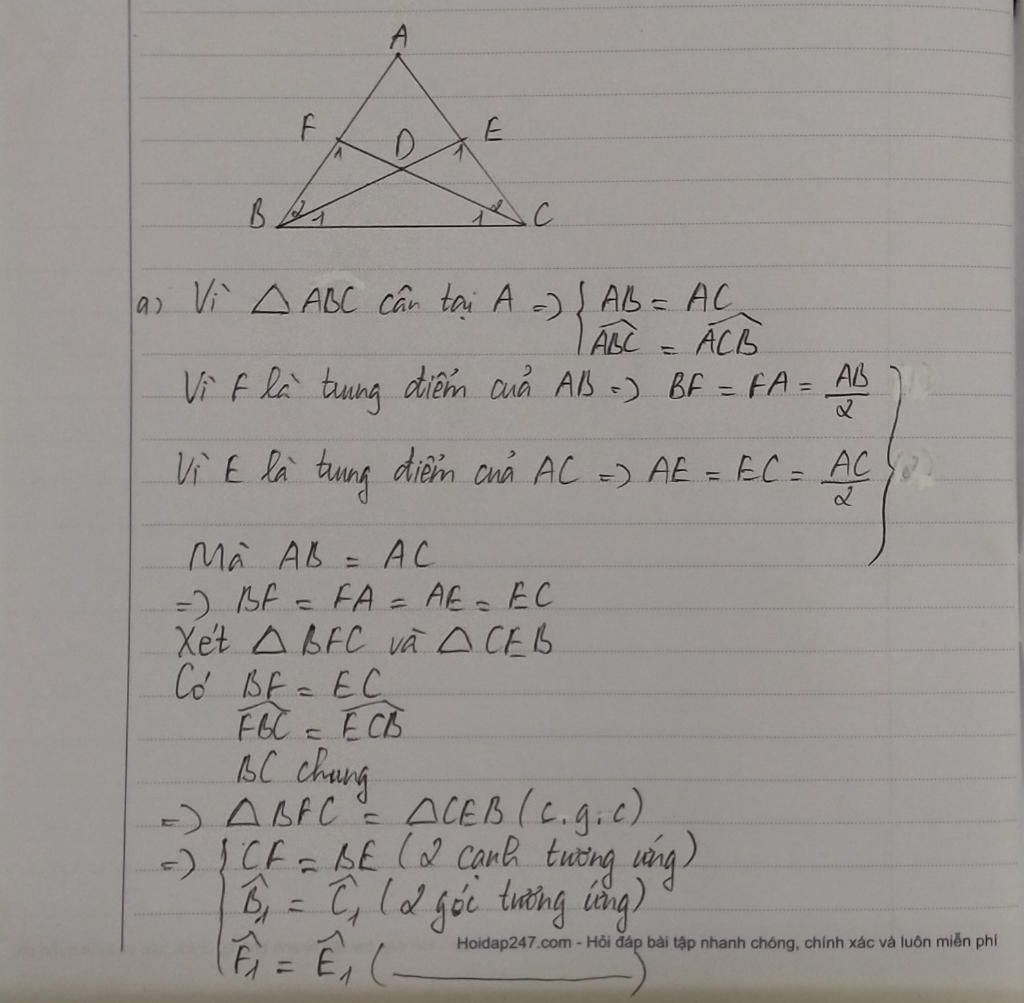 A
F D E
1 1
B 2 1 1 2 C
a) Vì △ABC cân tại A => { AB = AC
ABC = ACB
Vì F là trung điểm của AB => BF = FA = AB/2
Vì E là trung điểm của AC => AE = EC = AC/2
Mà AB = AC
=> BF = FA = AE = EC
Xét △BFC và △CEB
Có BF = EC
FBC = ECB
BC chung
=> △BFC = △CEB (c.g.c)
=> { CF = BE (2 cạnh tương ứng)
B̂1 = Ĉ1 (2 góc tương ứng)
F̂1 = Ê1 (________)
Hoidap247.com - Hỏi đáp bài tập nhanh chóng, chính xác và luôn miễn phí